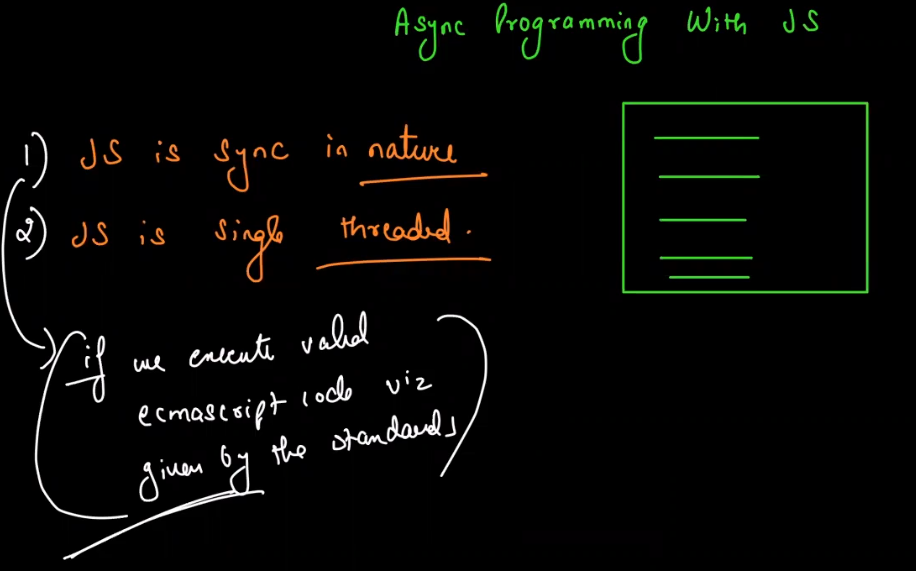 Async Programming With JS
1) JS is sync in nature
2) JS is single threaded.
if we execute valid
ecmascript code viz
given by the standards